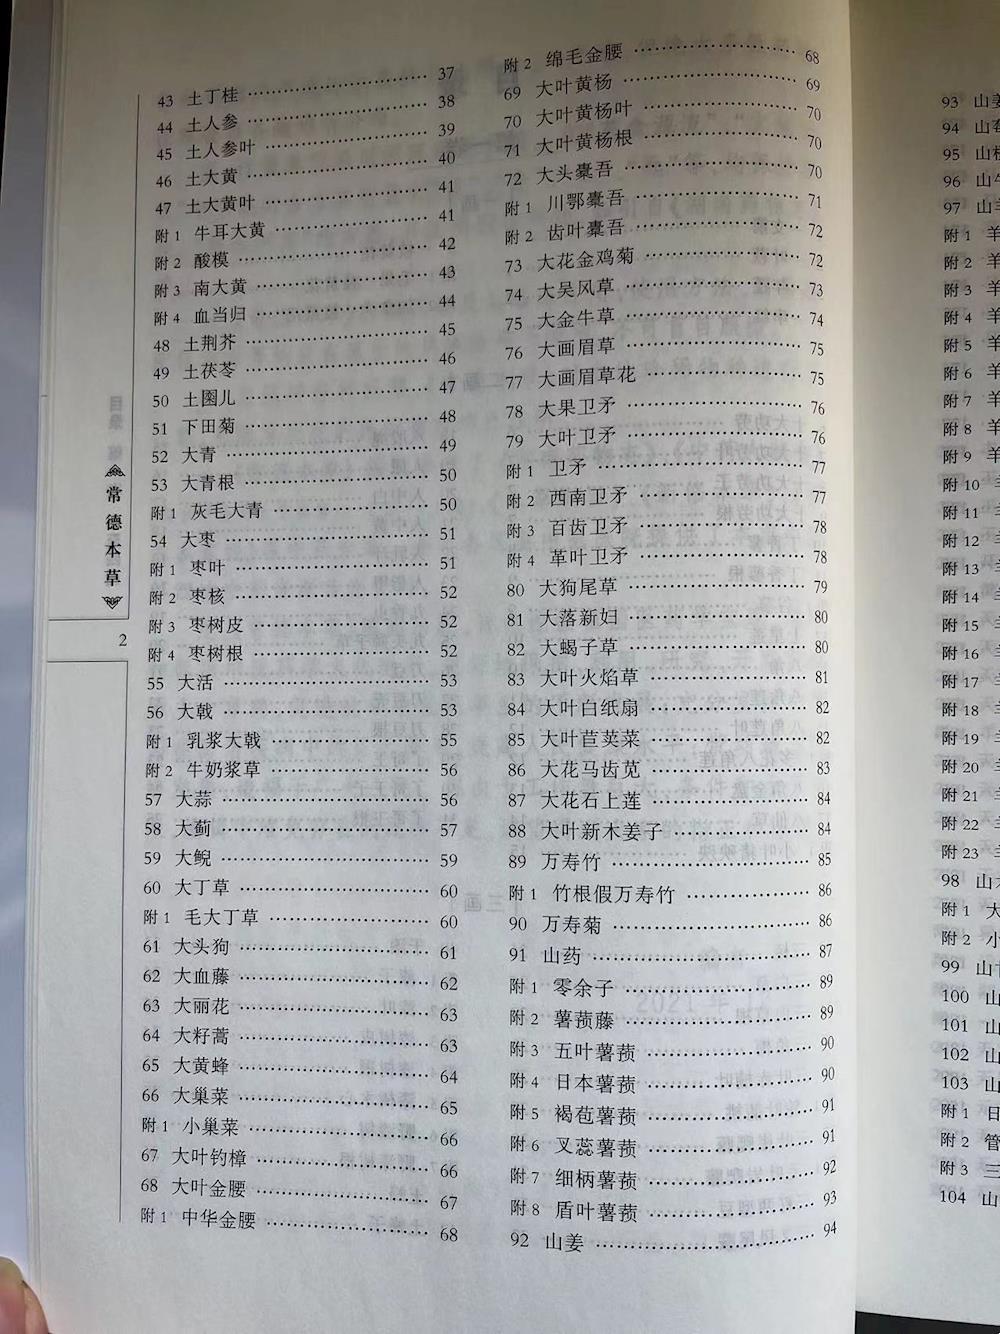 目录
常德本草
2
43 土丁桂 …… 37
44 土人参 …… 38
45 土人参叶 …… 39
46 土大黄 …… 40
47 土大黄叶 …… 41
附1 牛耳大黄 …… 41
附2 酸模 …… 42
附3 南大黄 …… 43
附4 血当归 …… 44
48 土荆芥 …… 45
49 土茯苓 …… 46
50 土圞儿 …… 47
51 下田菊 …… 48
52 大青 …… 49
53 大青根 …… 50
附1 灰毛大青 …… 50
54 大枣 …… 51
附1 枣叶 …… 51
附2 枣核 …… 52
附3 枣树皮 …… 52
附4 枣树根 …… 52
55 大活 …… 53
56 大戟 …… 53
附1 乳浆大戟 …… 55
附2 牛奶浆草 …… 56
57 大蒜 …… 56
58 大蓟 …… 57
59 大鲵 …… 59
60 大丁草 …… 60
附1 毛大丁草 …… 60
61 大头狗 …… 61
62 大血藤 …… 62
63 大丽花 …… 63
64 大籽蒿 …… 63
65 大黄蜂 …… 64
66 大巢菜 …… 65
附1 小巢菜 …… 66
67 大叶钓樟 …… 66
68 大叶金腰 …… 67
附1 中华金腰 …… 68
附2 绵毛金腰 …… 68
69 大叶黄杨 …… 69
70 大叶黄杨叶 …… 70
71 大叶黄杨根 …… 70
72 大头橐吾 …… 70
附1 川鄂橐吾 …… 71
附2 齿叶橐吾 …… 72
73 大花金鸡菊 …… 72
74 大吴风草 …… 73
75 大金牛草 …… 74
76 大画眉草 …… 75
77 大画眉草花 …… 75
78 大果卫矛 …… 76
79 大叶卫矛 …… 76
附1 卫矛 …… 77
附2 西南卫矛 …… 77
附3 百齿卫矛 …… 78
附4 革叶卫矛 …… 78
80 大狗尾草 …… 79
81 大落新妇 …… 80
82 大蝎子草 …… 80
83 大叶火焰草 …… 81
84 大叶白纸扇 …… 82
85 大叶苣荬菜 …… 82
86 大花马齿苋 …… 83
87 大花石上莲 …… 84
88 大叶新木姜子 …… 84
89 万寿竹 …… 85
附1 竹根假万寿竹 …… 86
90 万寿菊 …… 86
91 山药 …… 87
附1 零余子 …… 89
附2 薯蓣藤 …… 89
附3 五叶薯蓣 …… 90
附4 日本薯蓣 …… 90
附5 褐苞薯蓣 …… 91
附6 叉蕊薯蓣 …… 91
附7 细柄薯蓣 …… 92
附8 盾叶薯蓣 …… 93
92 山姜 …… 94
93 山
94 山
95 山
96 山
97 山
附1 羊
附2 羊
附3 羊
附4 羊
附5 羊
附6 羊
附7 羊
附8 羊
附9 羊
附10
附11
附12
附13
附14
附15
附16
附17
附18
附19
附20
附21
附22
附23
98 山
附1 大
附2 小
99 山
100 山
101 山
102 山
103 山
附1 日
附2 管
附3 三
104 山